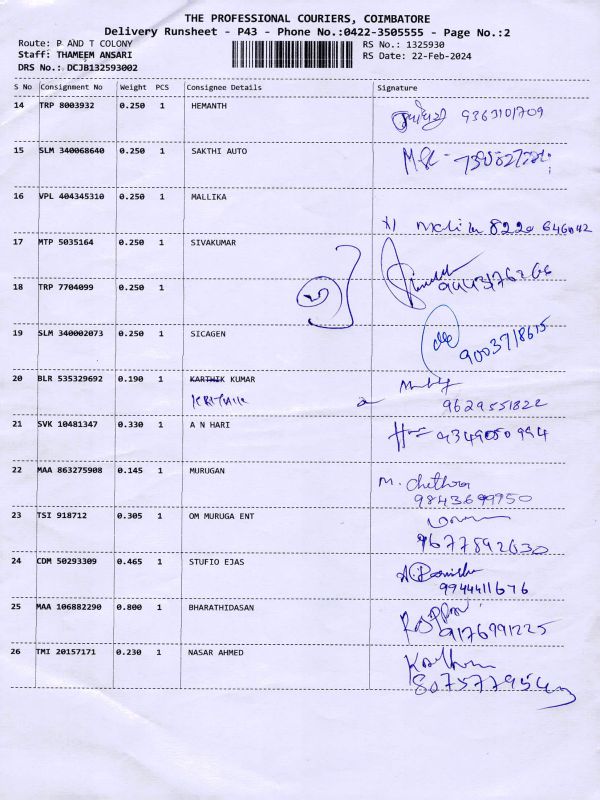 THE PROFESSIONAL COURIERS, COIMBATORE
Delivery Runsheet - P43 - Phone No.:0422-3505555 - Page No.:2
Route: P AND T COLONY RS No.: 1325930
Staff: THAMEEM ANSARI RS Date: 22-Feb-2024
DRS No.: DCJB132593002
S No Consignment No Weight PCS Consignee Details Signature
14 TRP 8003932 0.250 1 HEMANTH 9363101709
15 SLM 340068640 0.250 1 SAKTHI AUTO
16 VPL 404345310 0.250 1 MALLIKA
8220 646042
17 MTP 5035164 0.250 1 SIVAKUMAR
18 TRP 7704099 0.250 1
19 SLM 340002073 0.250 1 SICAGEN
9003718615
20 BLR 535329692 0.190 1 KARTHIK KUMAR
9629551822
21 SVK 10481347 0.330 1 A N HARI 9349050994
22 MAA 863275908 0.145 1 MURUGAN
M. Chethra
9843699950
23 TSI 918712 0.305 1 OM MURUGA ENT
9677892630
24 CDM 50293309 0.465 1 STUFIO EJAS
9944411676
25 MAA 106882290 0.800 1 BHARATHIDASAN
9176991225
26 TMI 20157171 0.230 1 NASAR AHMED